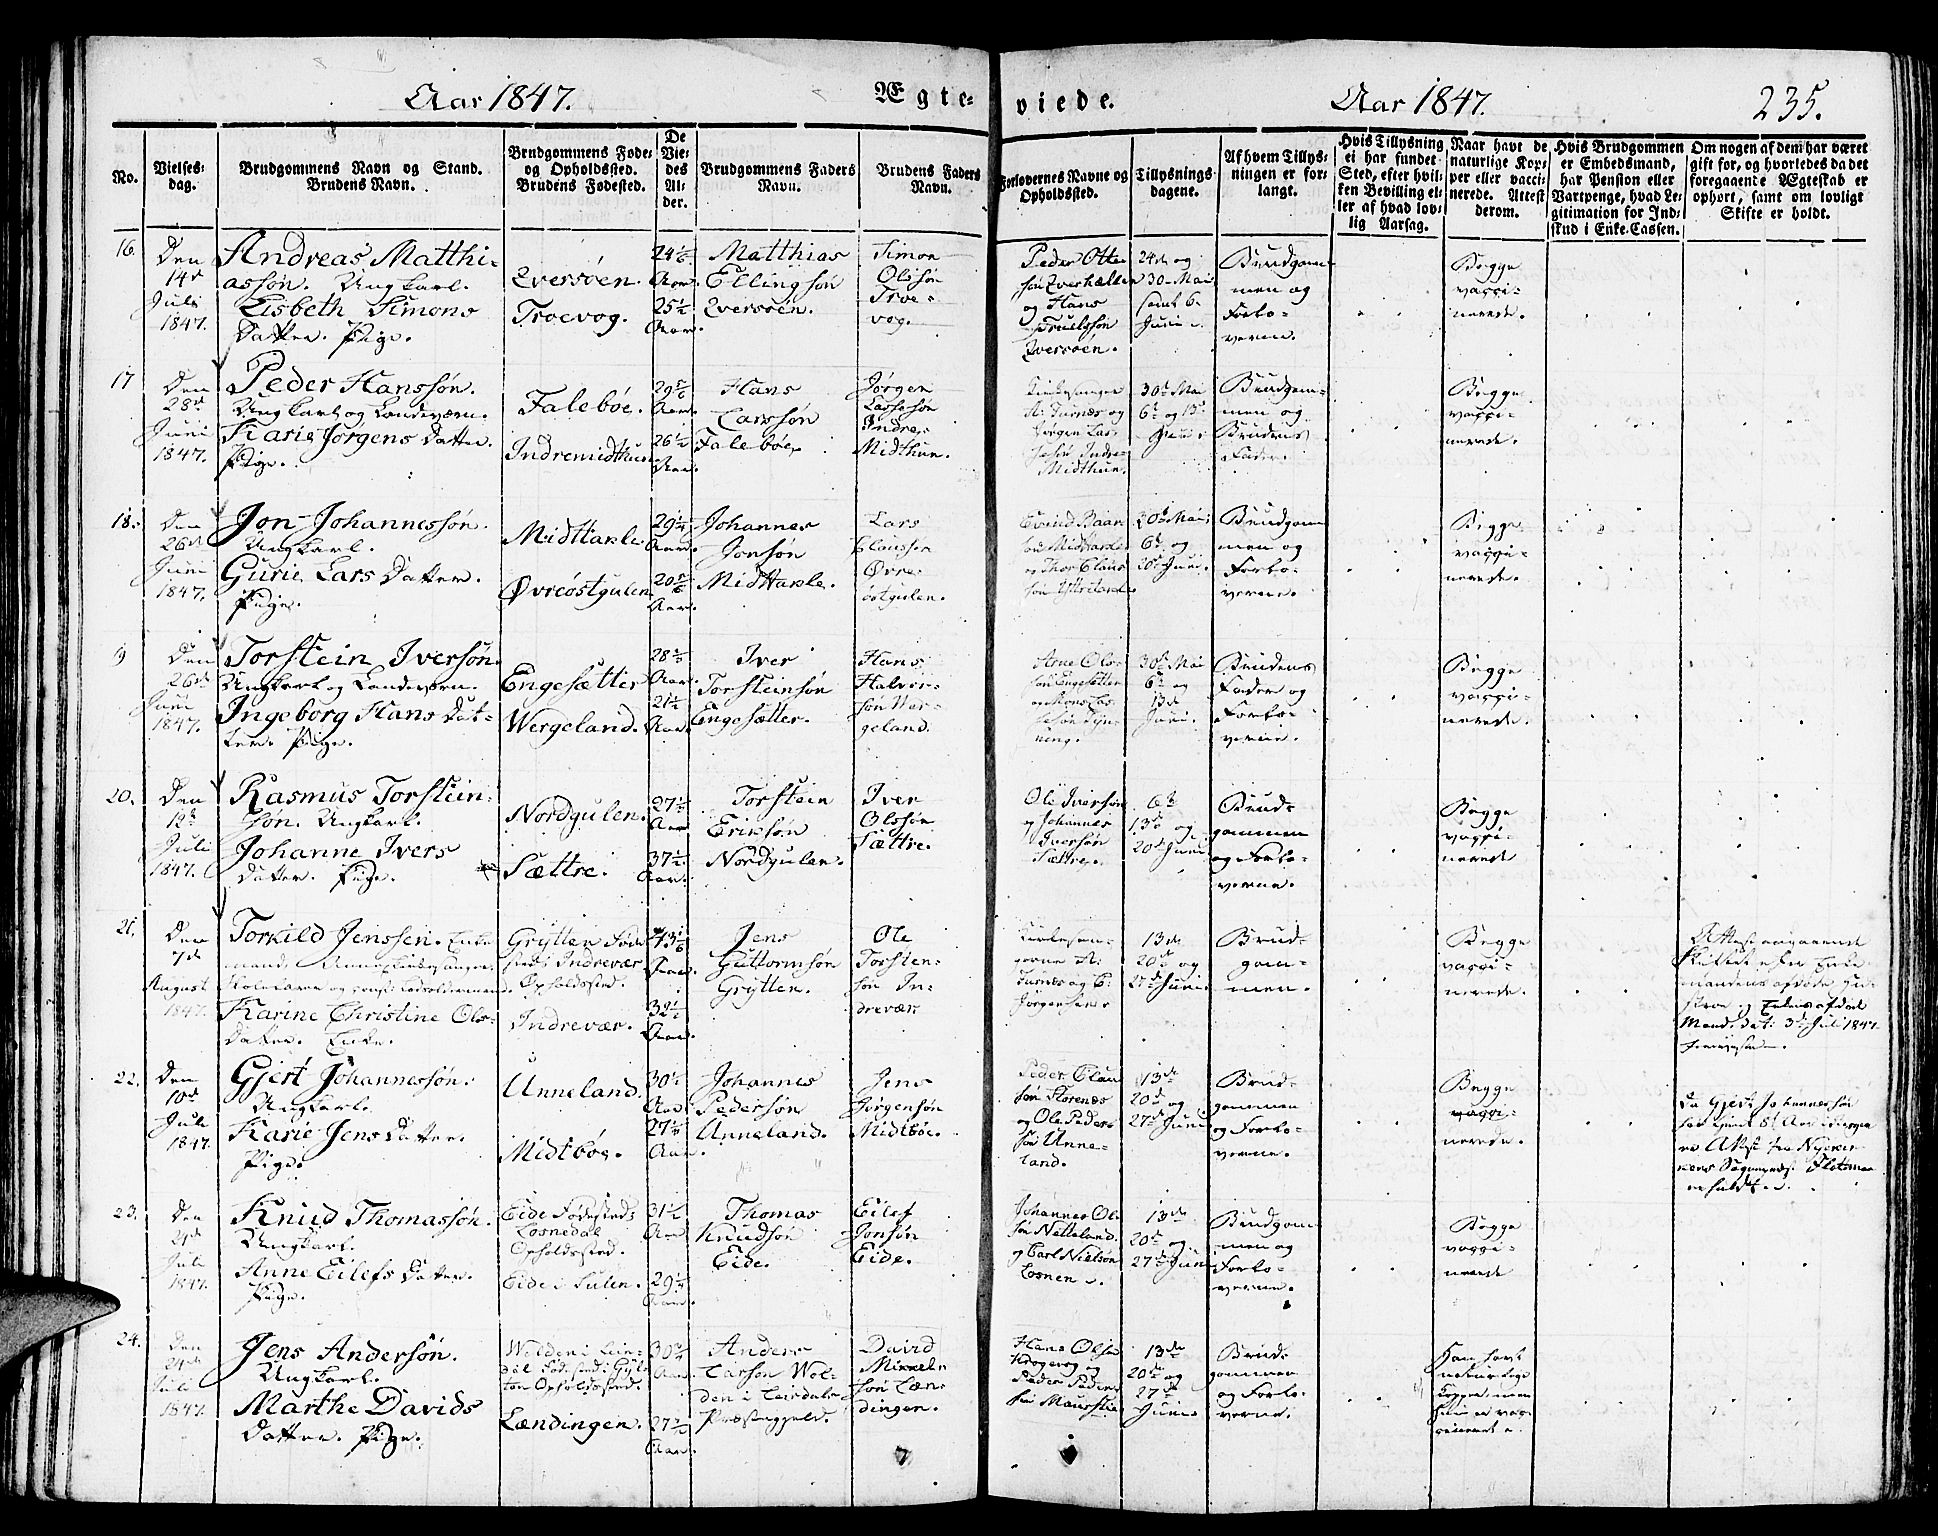 Aar 1847.
Ægte-
viede.
Aar 1847.
235.
No.
Vielses-
dag.
Brudgommens Navn og Stand.
Brudens Navn.
Brudgommens Føde-
og Opholdssted.
Brudens Fødested.
De
Vie-
des
Al-
der.
Brudgommens Faders
Navn.
Brudens Faders
Navn.
Forlovernes Navne og
Opholdssted.
Tillysnings-
dagene.
Af hvem Tillys-
ningen er for-
langt.
Hvis Tillysning
ei har fundet
Sted, efter hvil-
ken Bevilling el-
ler af hvad lov-
lig Aarsag.
Naar havt de
naturlige Kop-
per eller vacci-
nerede. Attest
derom.
Hvis Brudgommen
er Embedsmand,
har Pension eller
Vartpenge, hvad Le-
gitimation for Ind-
skud i Enke-Cassen.
Om nogen af dem har været
gift før, og hvorledes da det
foregaaende Ægteskab er
ophørt, samt om lovligt
Skifte er holdt.
16.
Den
14d
Juli
1847.
Andreas Matthi-
assøn. Ungkarl.
Lisbeth Simons
Datter. Pige.
Zversøen.
Troevog.
24
Aar.
25½
Aar.
Matthias
Ellingsøn
Zversøen.
Simon
Olssøn
Troe-
vog.
Peder Otte-
og Hans
Truelssøn
Zversøen.
24de og
30 Mai
samt 6
Juni.
Brudgom-
men og
Forlo-
verne.
Begge
vacci-
nerede.
17
Den
28de
Juni
1847.
Peder Hanssøn.
Ungkarl og Landeværn.
Karie Jørgens Datter.
Pige.
Falebøe.
Indremidthun
29
Aar.
26½
Aar.
Hans
Larssøn
Falebøe.
Jørgen
Lassesøn
Indre-
Midthun.
Kirkesanger
A. Turnæs og
Jørgen Las-
sesøn Indre
Midthun.
30d Mai
6te og 13d
Juni
Brudgom-
men og
Brudens
Fader.
Begge
vacci-
nerede.
18.
Den
26de
Juni
1847.
Jon Johannessøn.
Ungkarl.
Gurie Lars Datter.
Pige.
Midthasle
Øvreøstgulen
29¼
Aar.
20
Aar.
Johannes
Jonsøn
Midthasle.
Lars
Claussen
Øvre-
østgulen.
30d Mai
6te og
20d Juni.
Brudgom
men og
Forlo-
verne.
Begge
vacci-
nerede.
9
Den
26de
Juni
1847.
Torstein Iversøn.
Ungkarl og Landeværn.
Ingeborg Hans Dat-
ter. Pige.
Engesætter
Wergeland.
28
Aar.
21½
Aar.
Iver
Torsteinsøn
Engesætter.
Hans
Halvor-
søn Wer-
geland.
Arne Ols-
søn Engesætter
30d Mai
6te og
13de
Juni.
Brudens
Fader og
Forlo-
verne.
Begge
vacci-
nerede.
20.
Den
12te
Juli
1847.
Rasmus Torstein-
søn. Ungkarl.
Johanne Ivers
Datter. Pige.
Nordgulen.
Sættre.
27
Aar
37½
Aar.
Torstein
Eriksøn
Nordgulen.
Iver
Olssøn
Sættre.
Ole Iversøn
og Johannes
Iversøn
Sættre.
6te
13de og
20de Juni
Brud-
gommen
og Forlo-
verne.
Begge
vacci-
nerede
21.
Den
7de
August
1847.
Torkild Jenssen. Enke-
mand,
Karine Christine Ols-
Datter. Enke.
Grytten Føde-
sted, Indrevær
Opholdssted.
Indrevær.
43
Aar.
32½
Aar.
Jens
Guttormsøn
Grytten.
Ole
Torsten-
søn In-
drevær
Kirkesan-
gerne A.
Turnæs og E.
Jørgensen.
13de
20de og
27de Juni.
Brud-
gom-
men.
Begge
vacci-
nerede.
Attest angaaende
Skiftet efter Enke-
mandens afdøde Hu-
stroe og Enkens afdøde
Mand, dat. 3d Juli 1847
22.
Den
10de
Juli
1847.
Gjert Johannessøn.
Ungkarl.
Karie Jens Datter.
Pige.
Unneland.
Midtbøe.
30½
Aar
27
Aar.
Johannes
Pedersøn
Unneland.
Jens
Jørgensøn
Midtbøe.
Peder Clau
søn Florenæs
og Ole Peder-
søn Unne-
land.
13de
20de og
27de Juni
Brud-
gommen
og Forlo-
verne.
Begge
vacci-
nerede.
Da Gjert Johannessøn
23.
Den
24de
Juli
1847.
Knud Thomassøn.
Ungkarl.
Anne Eilefs Datter.
Pige.
Eide Fødested
Losnedal
Opholdssted.
Eide i Sulen.
31½
Aar
29
Aar.
Thomas
Knudsøn
Eide.
Eilef
Jonsøn
Eide.
Johannes Ol-
søn Netteland.
og Carl Nielsøn
Losnen.
13de
20de og
27de Juni
Brudgom
men og
Forlo-
verne.
Begge
vacci-
nerede
24.
Den
24de
Juli
1847.
Jens Andersøn.
Ungkarl.
Marthe Davids
Datter. Pige.
Opholdssted.
Lændingen.
30
Aar.
27
Aar.
Anders
Larsøn Wol-
den i Leirdals
Præstegjeld.
David
Mikkels
søn Læn-
dingen.
Hans Olsøn
Krogevog og
Peder Peder-
13de
20de og
27de
Juni
Brud-
gommen
og Forlo-
verne.
Han havt
naturlige
Kopper, men